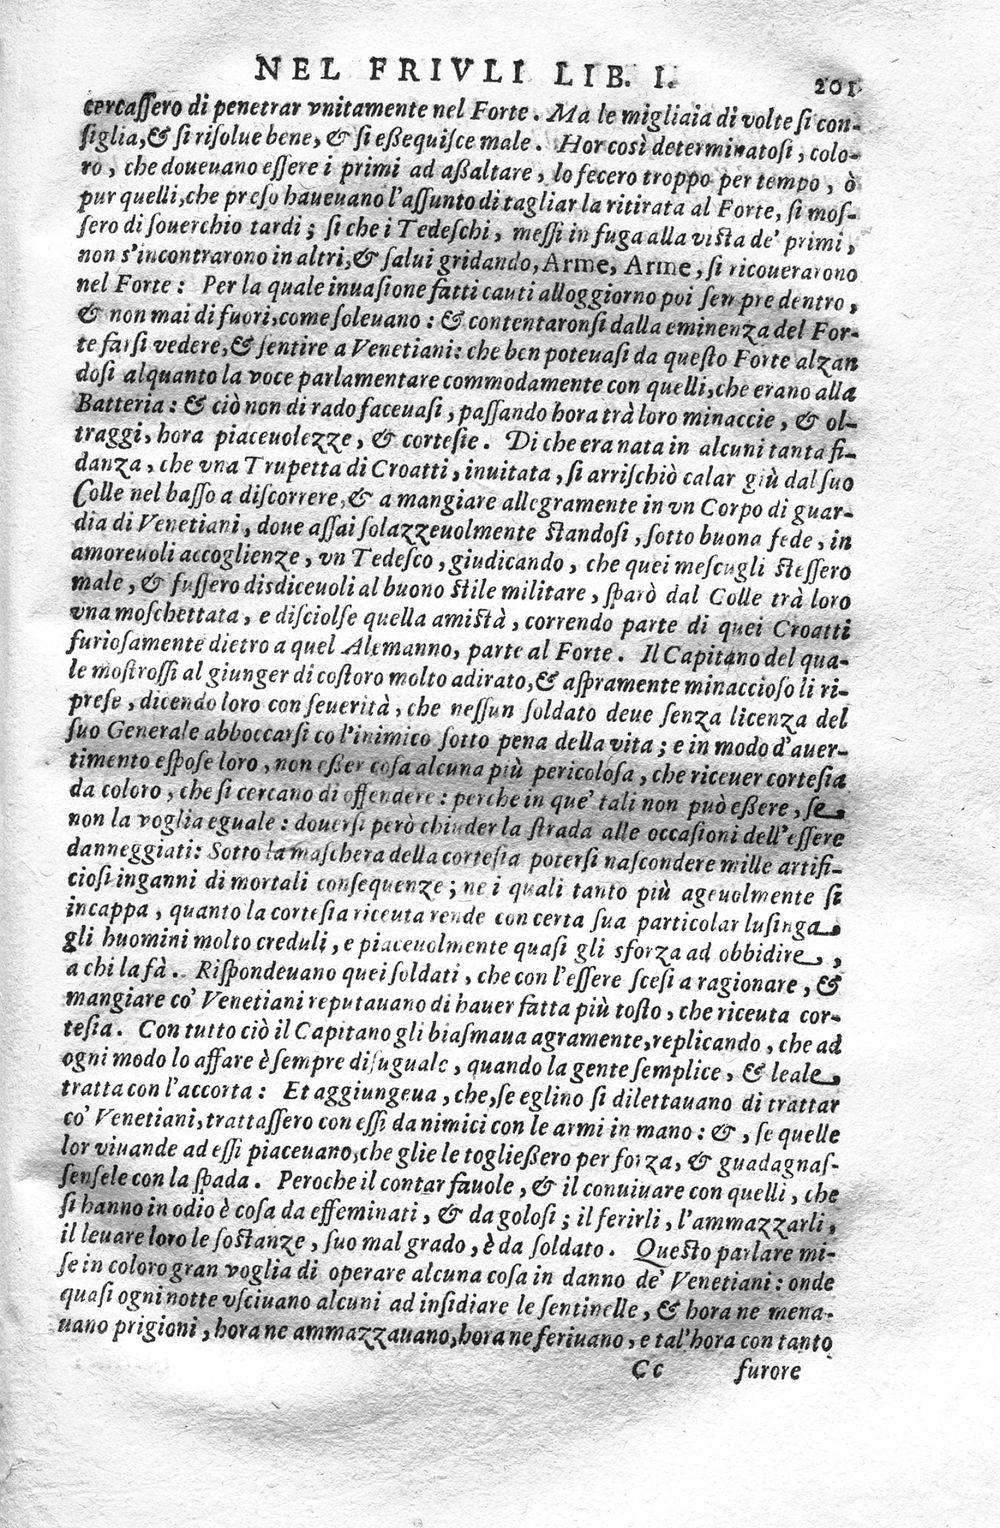 NEL FRIVLI LIB. I. 201
cercassero di penetrar vnitamente nel Forte. Ma le migliaia di volte si con-
siglia, & si risolue bene, & si eßequisce male. Hor così determinatosi, colo-
ro, che doueuano essere i primi ad aßaltare, lo fecero troppo per tempo, ò
pur quelli, che preso haueuano l'assunto di tagliar la ritirata al Forte, si mos-
sero di souerchio tardi; si che i Tedeschi, messi in fuga alla vista de' primi,
non s'incontrarono in altri, & salui gridando, Arme, Arme, si ricouerarono
nel Forte: Per la quale inuasione fatti cauti alloggiorno poi sempre dentro,
& non mai di fuori, come soleuano: & contentaronsi dalla eminenza del For-
te farsi vedere, & sentire a Venetiani: che ben poteuasi da questo Forte alzan
dosi alquanto la voce parlamentare commodamente con quelli, che erano alla
Batteria: & ciò non di rado faceuasi, passando hora trà loro minaccie, & ol-
traggi, hora piaceuolezze, & cortesie. Di che era nata in alcuni tanta fi-
danza, che vna Trupetta di Croatti, inuitata, si arrischiò calar giù dal suo
Colle nel basso a discorrere, & a mangiare allegramente in vn Corpo di guar-
dia di Venetiani, doue assai solazzeuolmente standosi, sotto buona fede, in
amoreuoli accoglienze, vn Tedesco, giudicando, che quei mescugli stessero
male, & fussero disdiceuoli al buono stile militare, sparò dal Colle trà loro
vna moschettata, e disciolse quella amistà, correndo parte di quei Croatti
furiosamente dietro a quel Alemanno, parte al Forte. Il Capitano del qua-
le mostrossi al giunger di costoro molto adirato, & aspramente minaccioso li ri-
prese, dicendo loro con seuerità, che nessun soldato deue senza licenza del
suo Generale abboccarsi co l'inimico sotto pena della vita; e in modo d'auer-
timento espose loro, non eßer cosa alcuna più pericolosa, che riceuer cortesia
da coloro, che si cercano di offendere: perche in que' tali non può eßere, se
non la voglia eguale: douersi però chiuder la strada alle occasioni dell'essere
danneggiati: Sotto la maschera della cortesia potersi nascondere mille artifi-
ciosi inganni di mortali consequenze; ne i quali tanto più ageuolmente si
incappa, quanto la cortesia riceuta rende con certa sua particolar lusinga
gli huomini molto creduli, e piaceuolmente quasi gli sforza ad obbidire,
a chi la fà. Rispondeuano quei soldati, che con l'essere scesi a ragionare, &
mangiare co' Venetiani reputauano di hauer fatta più tosto, che riceuta cor-
tesia. Con tutto ciò il Capitano gli biasmaua agramente, replicando, che ad
ogni modo lo affare è sempre disuguale, quando la gente semplice, & leale,
tratta con l'accorta: Et aggiungeua, che, se eglino si dilettauano di trattar
co' Venetiani, trattassero con essi da nimici con le armi in mano: &, se quelle
lor viuande ad essi piaceuano, che glie le togließero per forza, & guadagnas-
sensele con la spada. Peroche il contar fauole, & il conuiuare con quelli, che
si hanno in odio è cosa da effeminati, & da golosi; il ferirli, l'ammazzarli,
il leuare loro le sostanze, suo mal grado, è da soldato. Questo parlare mi-
se in coloro gran voglia di operare alcuna cosa in danno de' Venetiani: onde
quasi ogni notte vsciuano alcuni ad insidiare le sentinelle, & hora ne mena-
uano prigioni, hora ne ammazzauano, hora ne feriuano, e tal'hora con tanto
Cc furore